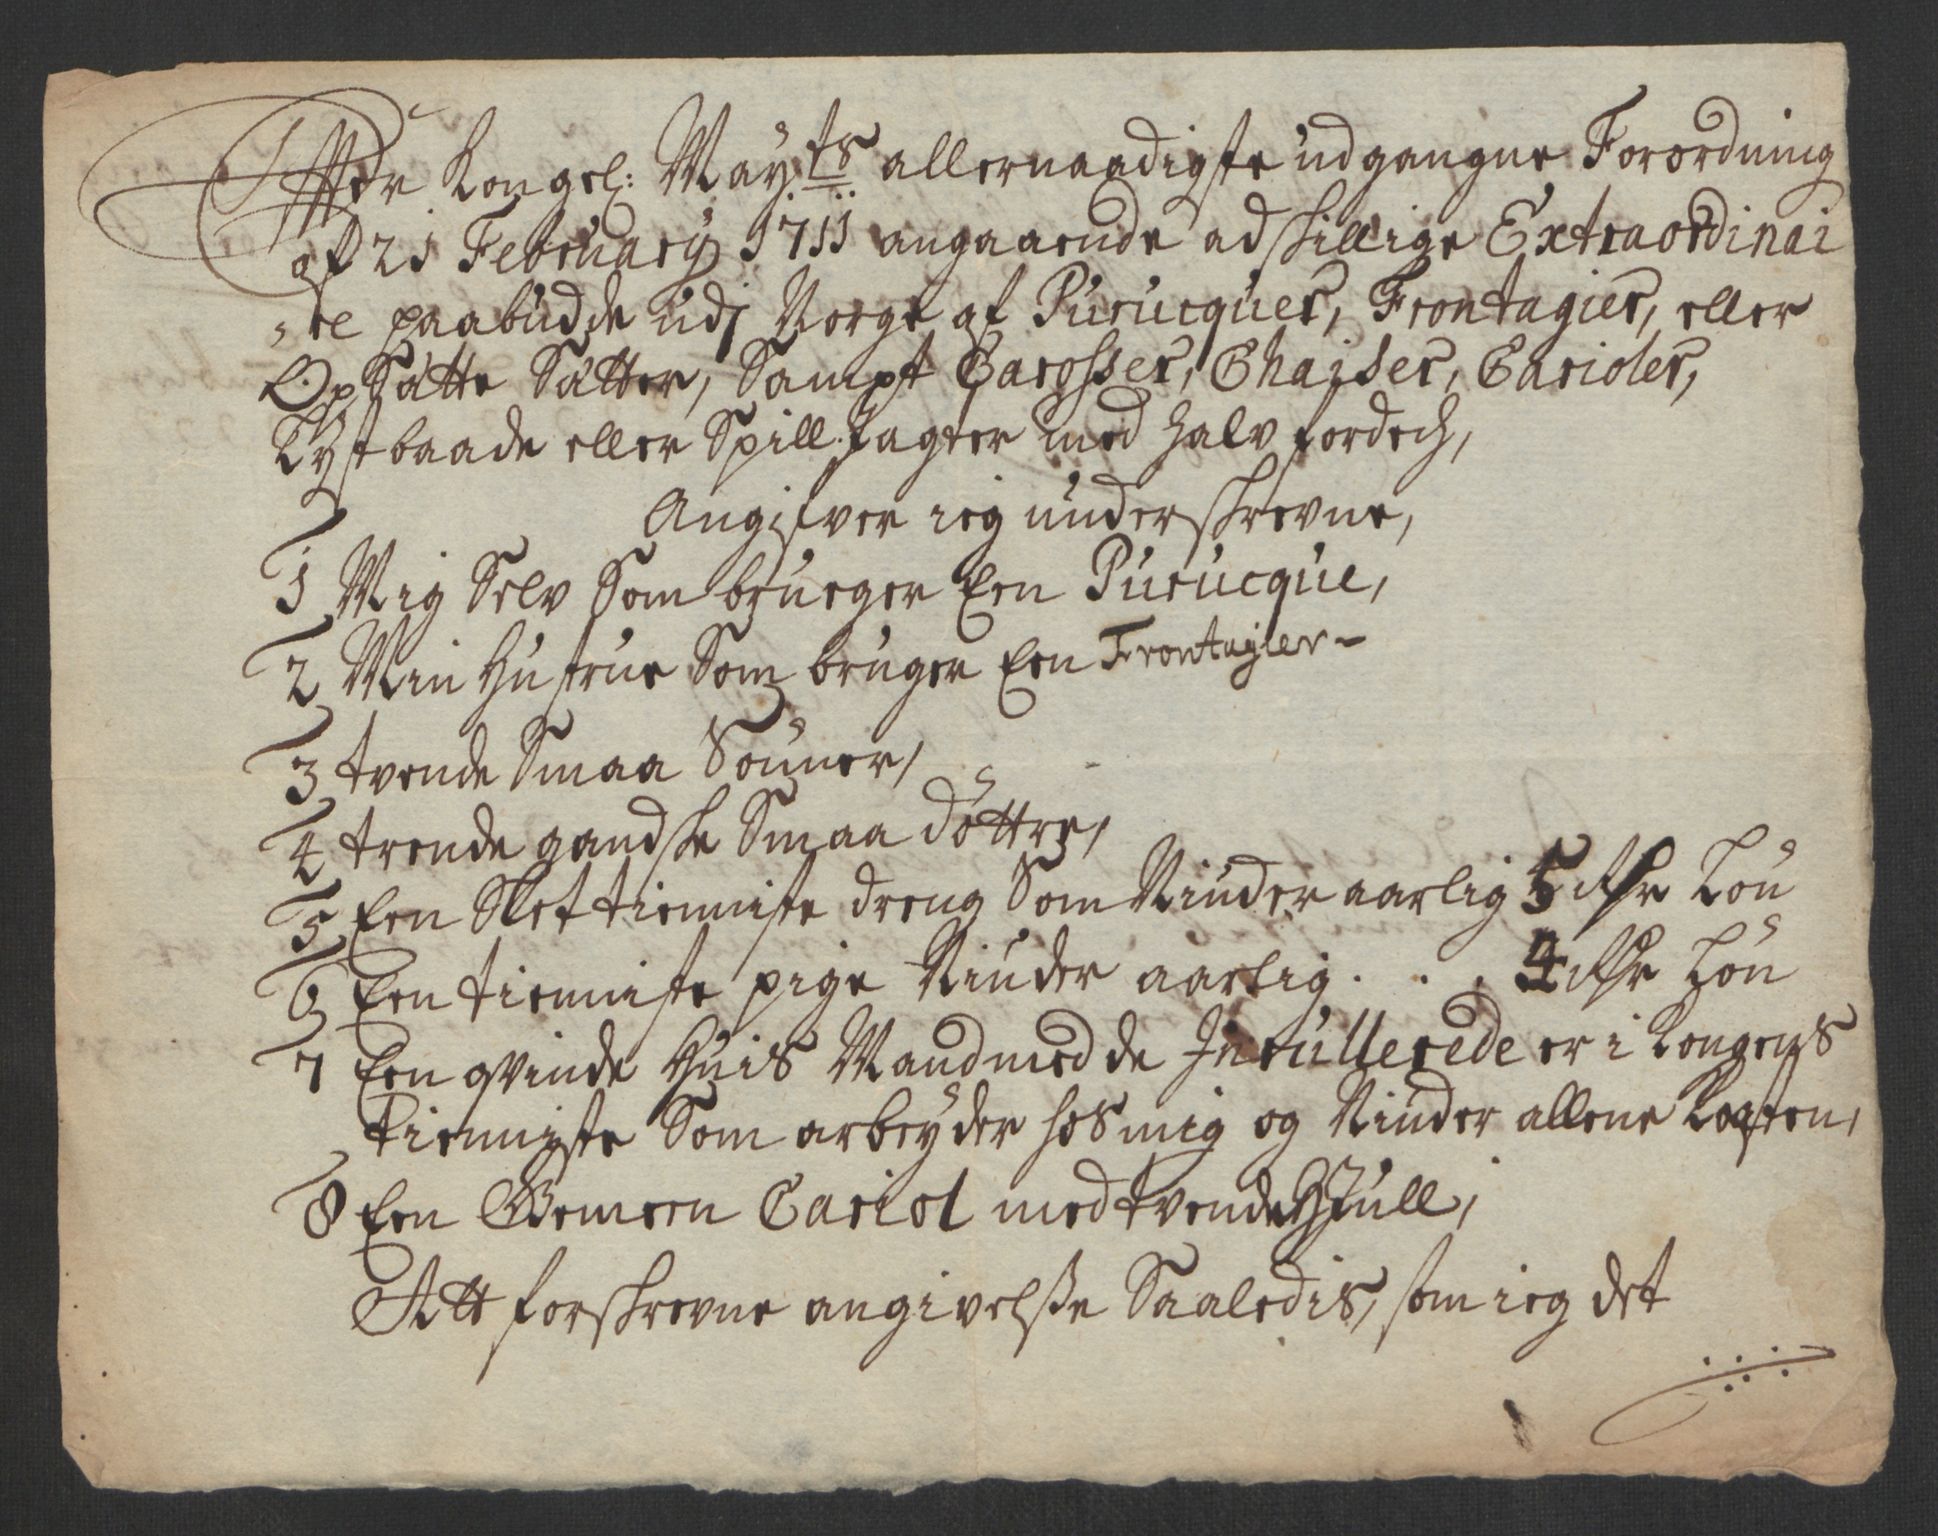 Efter Kongel: Mayts allernaadigste udgangne Forordning
af 21 February 1711 angaaende adskillige Extraordinai
,,re paabudde udj Norge af Purucques, Frontagies, eller
OpSatte Sätter, Sampt Carosser, Chaiser, Carioler,
Lystbaade eller Spill Jagter med halv fordech,
Angifver ieg underskrevne,
1 Mig Selv Som brueger Een Purucque,
2 Min Hustrue Som bruger Een Frontagier-
3 tvende Smaa Sönner,
4 trende gandske Smaa döttre,
5 Een Slet tienniste dreng Som Niuder aarlig 5 Rdr Lön
6 Een tienniste pige Niuder aarlig . . . 4 Rdr Lön
7 Een qvinde Huis Mand med de Inrullerede er i Kongens
tienniste Som arbeyder hos mig og Niuder allene Kosten,
8 Een Gemeen Cariol med tvende Hiull,
Att forskrevne angivelsse Saaledis, som ieg det